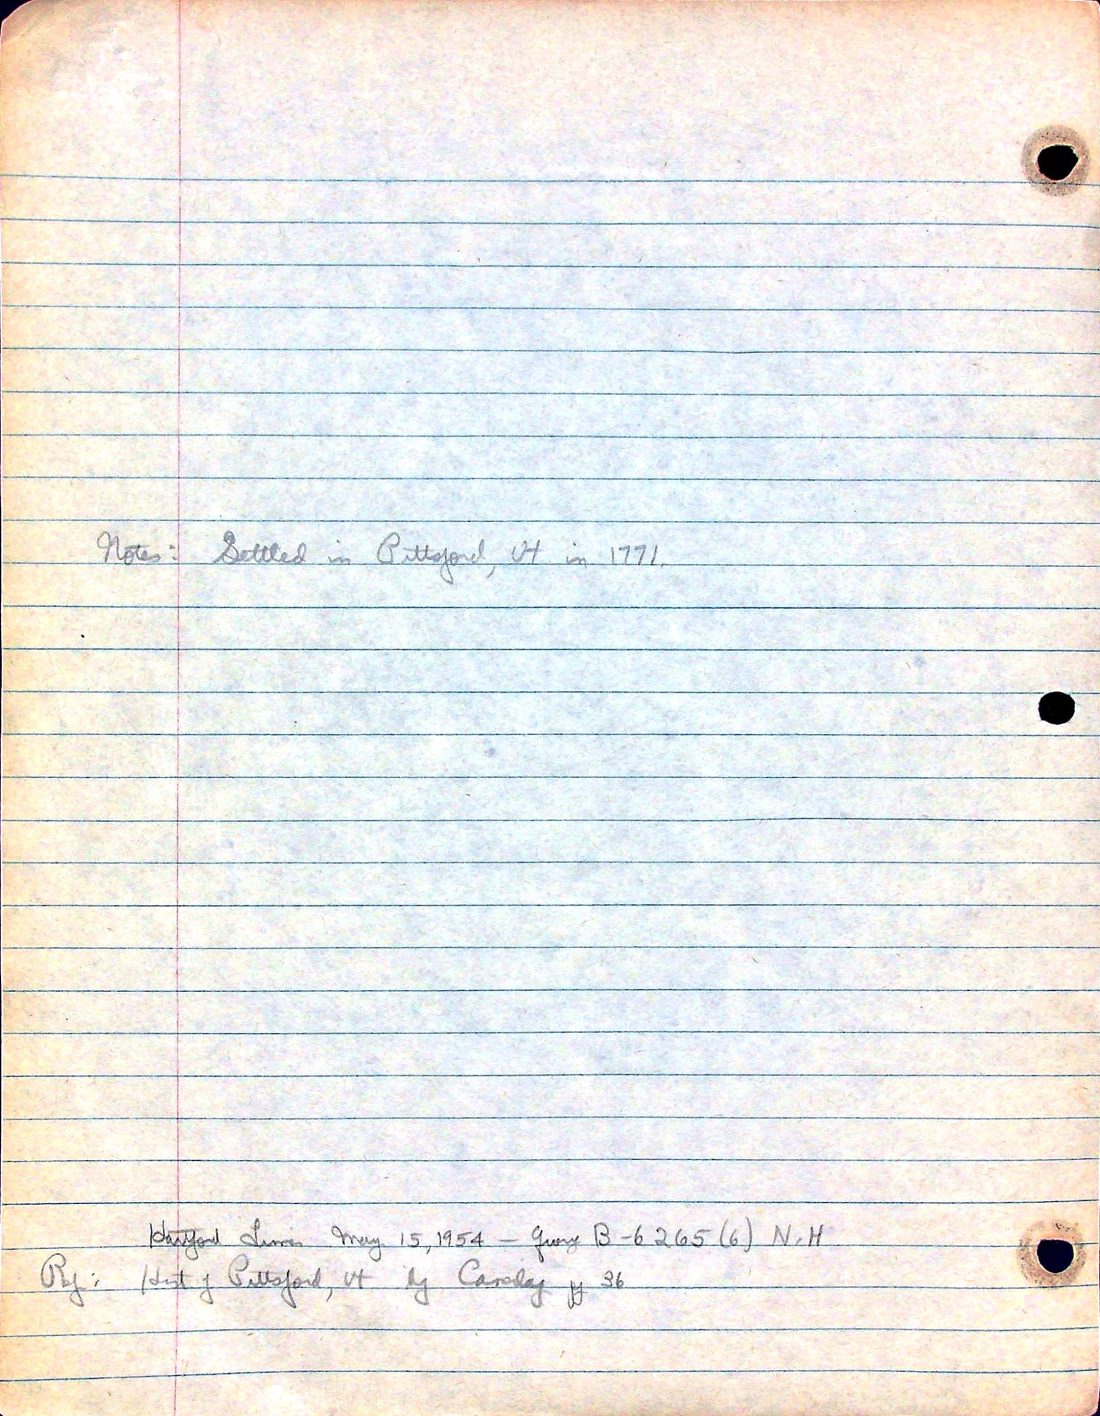 Notes: Settled in Pittsford, Vt in 1771.
Hartford Times May 15, 1954 — George B-6265(6) N.H
Ref: Hist of Pittsford, Vt by Caverly pg 36